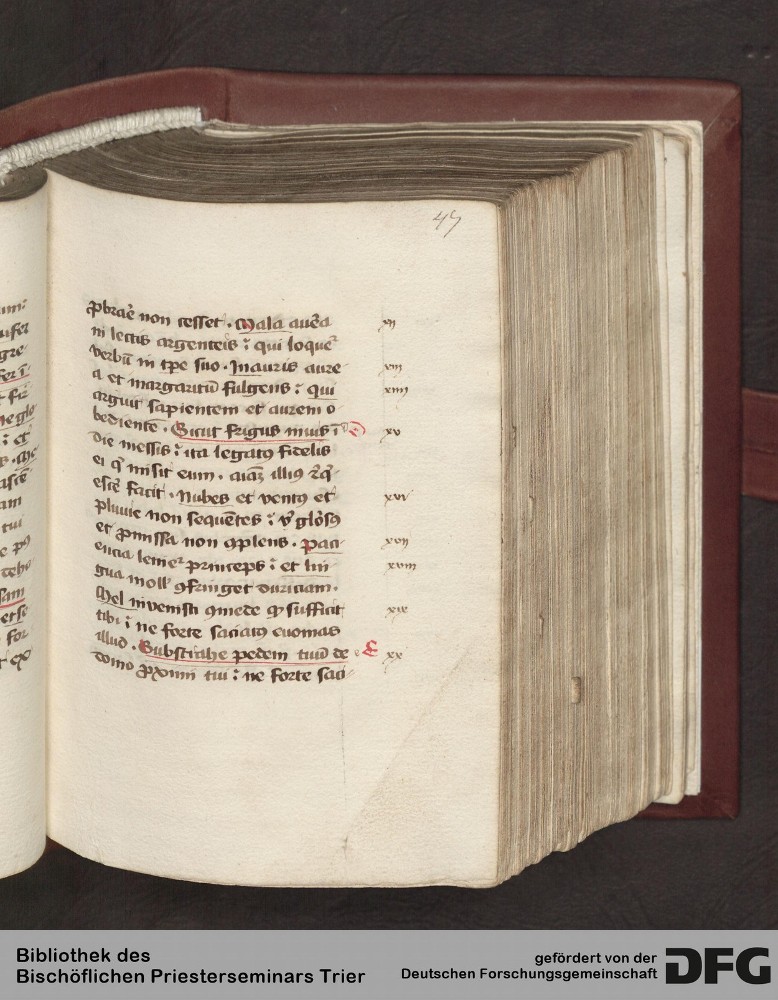 45
ꝓbrar̄e non cesset . Mala aur̄ea xii
in lectis argenteis : qui loquet᷑
verbū in tp̄e suo . Inauris aure xiii
a et margaritū fulgens : qui xiiii
arguit sapientem et aurem o
bedientē . Sicut frigus nivis ī xv
die messis : ita legatꝰ fidelis
ei qͥ misit eum . aīaꝫ illiꝰ ꝛq̄
escē facit . Nubes et ventꝰ et xvi
pluvie non sequētes : vͥ glōsꝰ
et ꝓmissa non ꝯplens . Paci xvii
encia leniet᷑ princeps : et lin xviii
gua moll' ꝯfringet duriciam .
Mel invenisti ꝯmede qͩ sufficit xix
tibi : ne forte saciatꝰ evomas
illud . Substrahe pedem tuū de xx
domo ꝓximi tui : ne forte saci
Bibliothek des
Bischöflichen Priesterseminars Trier
gefördert von der
Deutschen Forschungsgemeinschaft
DFG